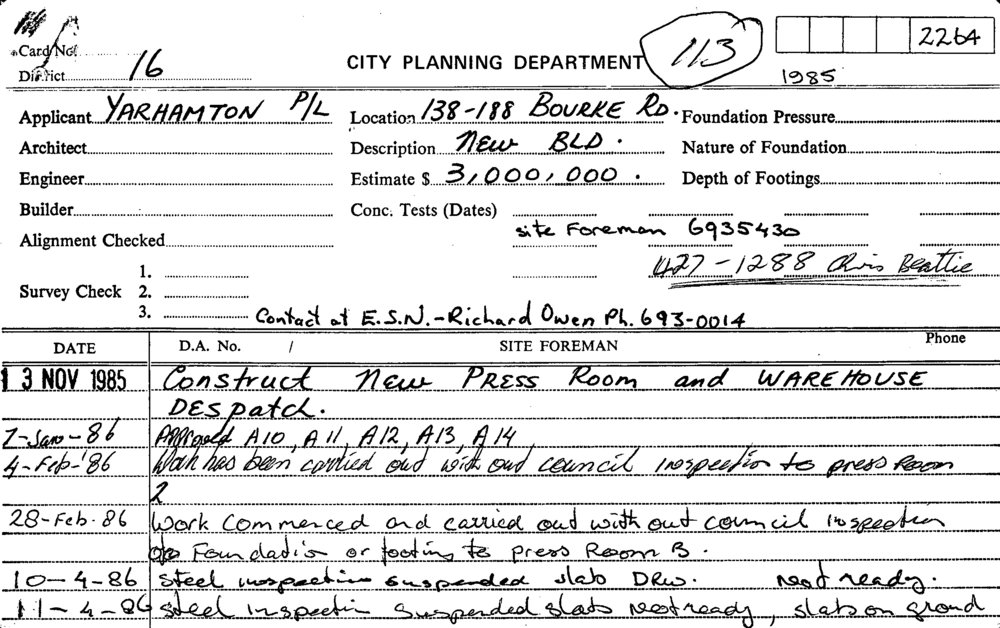 Card No.
District 16
CITY PLANNING DEPARTMENT
113
2264
1985
Applicant YARHAMTON P/L
Location 138-188 BOURKE RD.
Foundation Pressure
Architect
Description NEW BLD.
Nature of Foundation
Engineer
Estimate $ 3,000,000.
Depth of Footings
Builder
Conc. Tests (Dates)
Alignment Checked
site Foreman 6935430
427-1288 Chris Beattie
Survey Check
1.
2.
3.
Contact at E.S.N.-Richard Owen Ph. 693-0014
DATE
D.A. No. /
SITE FOREMAN
Phone
13 NOV 1985 Construct New PRESS Room and WAREHOUSE
DESpatch.
7-Jan-86 Approved A10, A11, A12, A13, A14
4-Feb-'86 Work has been carried out with out council inspection to press Room
2
28-Feb-86 Work commenced and carried out with out council inspection
to Foundation or footing to press Room B.
10-4-86 Steel inspection suspended slab DRW. Not ready.
11-4-86 steel inspection suspended slabs not ready, slabs on ground